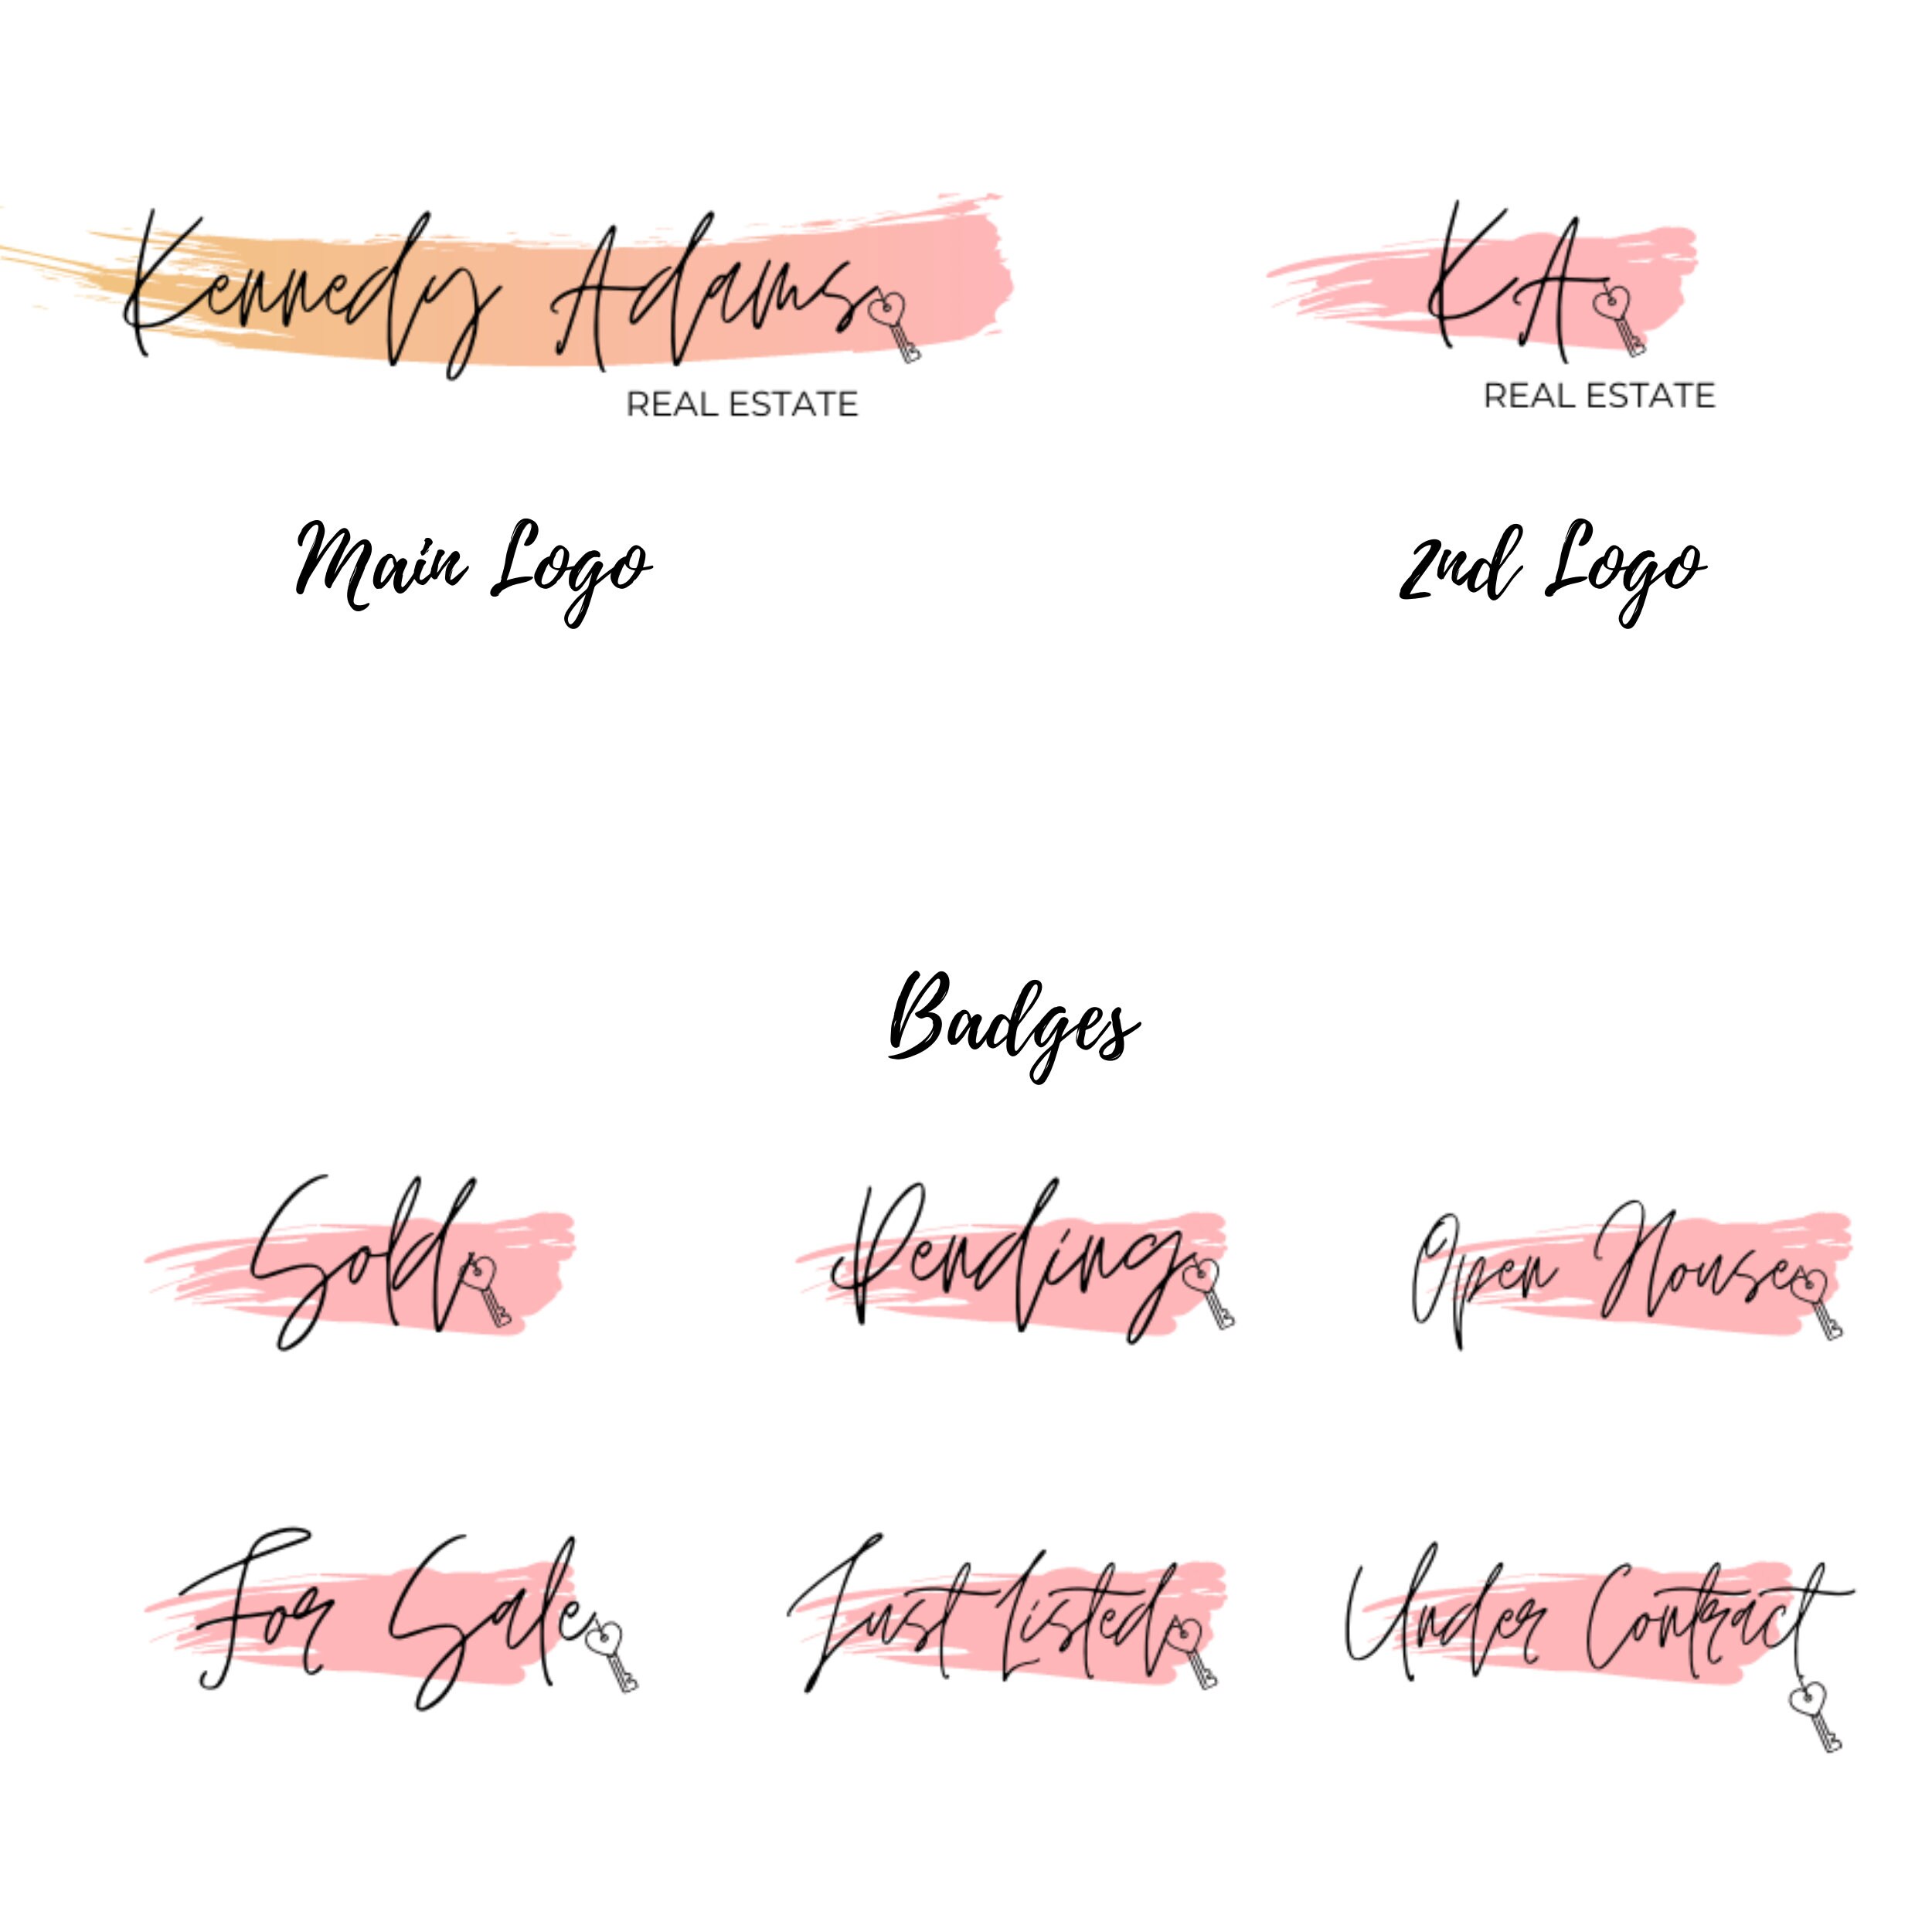 Kennedy Adams
REAL ESTATE
KA
REAL ESTATE
Main Logo
2nd Logo
Badges
Sold
Pending
Open House
For Sale
Just Listed
Under Contract